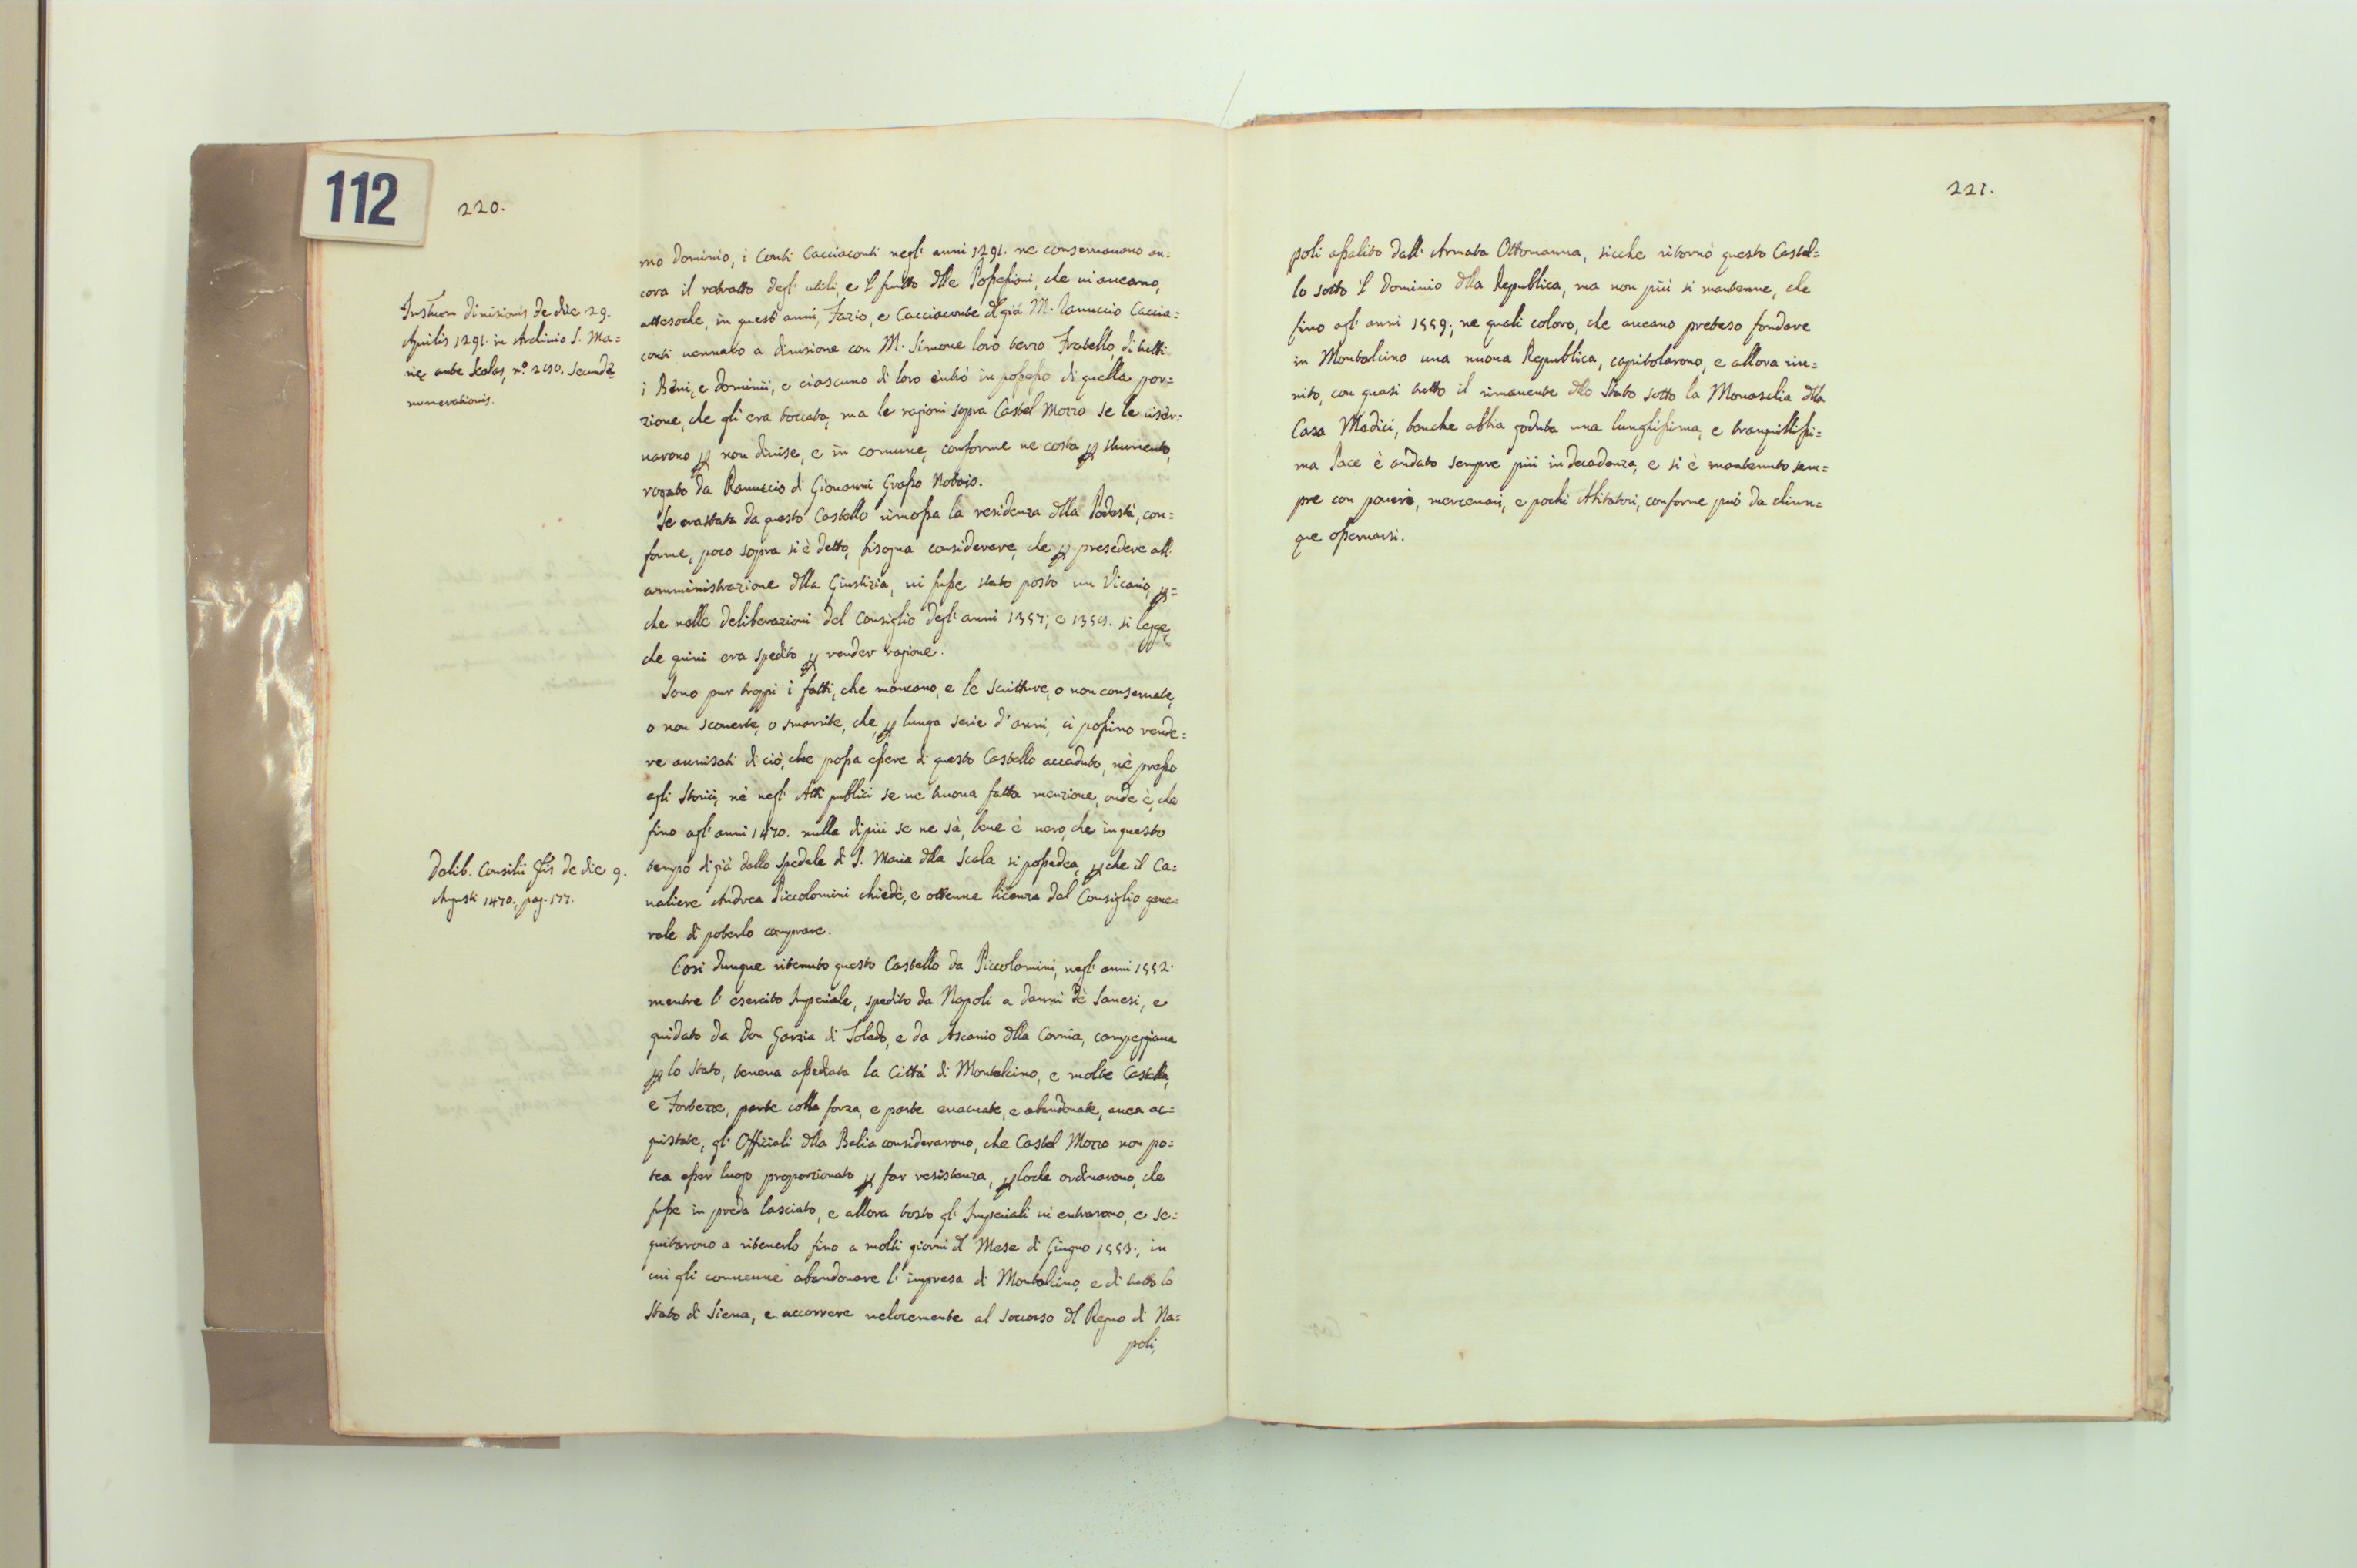 112
220.
mo dominio, i Conti Cacciaconti negl' anni 1291. ne conseruauono an=
cora il retratto degl' utili, e 'l frutto dlle Possessioni, che ui aueano,
attesoche, in quest' anni, Fazio, e Cacciaconte dl già M. Ranuccio Caccia=
conti uennaro a diuisione con M. Simone loro terzo Fratello, di tutti
i Beni, e dominii, e ciascuno di loro entrò in possesso di quella por=
zione, che gli era toccata, ma le ragioni sopra Castel Mozzo se le riser=
uarono p non diuise, e in comune, conforme ne costa p strumento,
rogato da Ranuccio di Giouanni Grasso Notaio.
Instrum diuisionis de die 29.
Aprilis 1291. in Archiuio S. Ma=
rię ante Scalas, n.º 2610. secundę
numerationis.
Se era stata da questo Castello rimossa la residenza dlla Podestà, con=
forme, poco sopra si è detto, bisogna considerare, che p presedere all'
amministrazione dlla Giustizia, ui fusse stato posto un Vicario, p=
che nelle deliberazioni del Consiglio degl' anni 1357; e 1359. si legge,
che quiui era spedito p render ragione.
Sono pur troppi i fatti, che mancano, e le scritture, o non conseruate,
o non scouerte, o smarrite, che, p lunga serie d'anni, ci possino rende=
re auuisati di ciò, che possa essere di questo Castello accaduto, nè presso
agli Storici, nè negl' Atti publici se ne truoua fatta menzione, onde è, che
fino agl' anni 1470. nulla di più se ne sà, bene è uero, che in questo
tempo di già dallo Spedale di S. Maria dlla Scala si possedea, p che il Ca=
ualiere Andrea Piccolomini chiedè, e ottenne licenza dal Consiglio gene=
rale di poterlo comprare.
Delib. Consilii Gñis de die 9.
Augusti 1470., pag. 177.
Così dunque ritenuto questo Castello da Piccolomini, negl' anni 1552.
mentre l' esercito Imperiale, spedito da Napoli a danni de' Sanesi, e
guidato da Don Garzia di Toledo, e da Ascanio dlla Cornia, campeggiaua
p lo Stato, teneua assediata la Città di Montalcino, e molte Castella,
e Fortezze, parte colla forza, e parte euacuate, e abandonate, auea ac=
quistate, gl' Officiali dlla Balia considerarono, che Castel Mozzo non po=
tea esser luogo proporzionato p far resistenza, p loche ordinarono, che
fusse in preda lasciato, e allora tosto gl' Imperiali ui entrarono, e se=
guitarono a ritenerlo fino a molti giorni dl Mese di Giugno 1553., in
cui gli conuenne abandonare l' impresa di Montalcino, e di tutto lo
Stato di Siena, e accorrere uelocemente al soccorso dl Regno di Na=
poli,
221.
poli assalito dall' Armata Ottomanna, sicche ritornò questo Castel=
lo sotto 'l Dominio dlla Republica, ma non più si mantenne, che
fino agl' anni 1559., ne quali coloro, che aueano preteso fondare
in Montalcino una nuoua Republica, capitolarono, e allora riu=
nito, con quasi tutto il rimanente dllo Stato sotto la Monarchia dlla
Casa Medici, benche abbia goduta una lunghissima, e tranquillissi=
ma Pace è andato sempre più in decadenza, e si è mantenuto sem=
pre con poueri, mercenari, e pochi Abitatori, conforme può da chiun=
que osseruarsi.